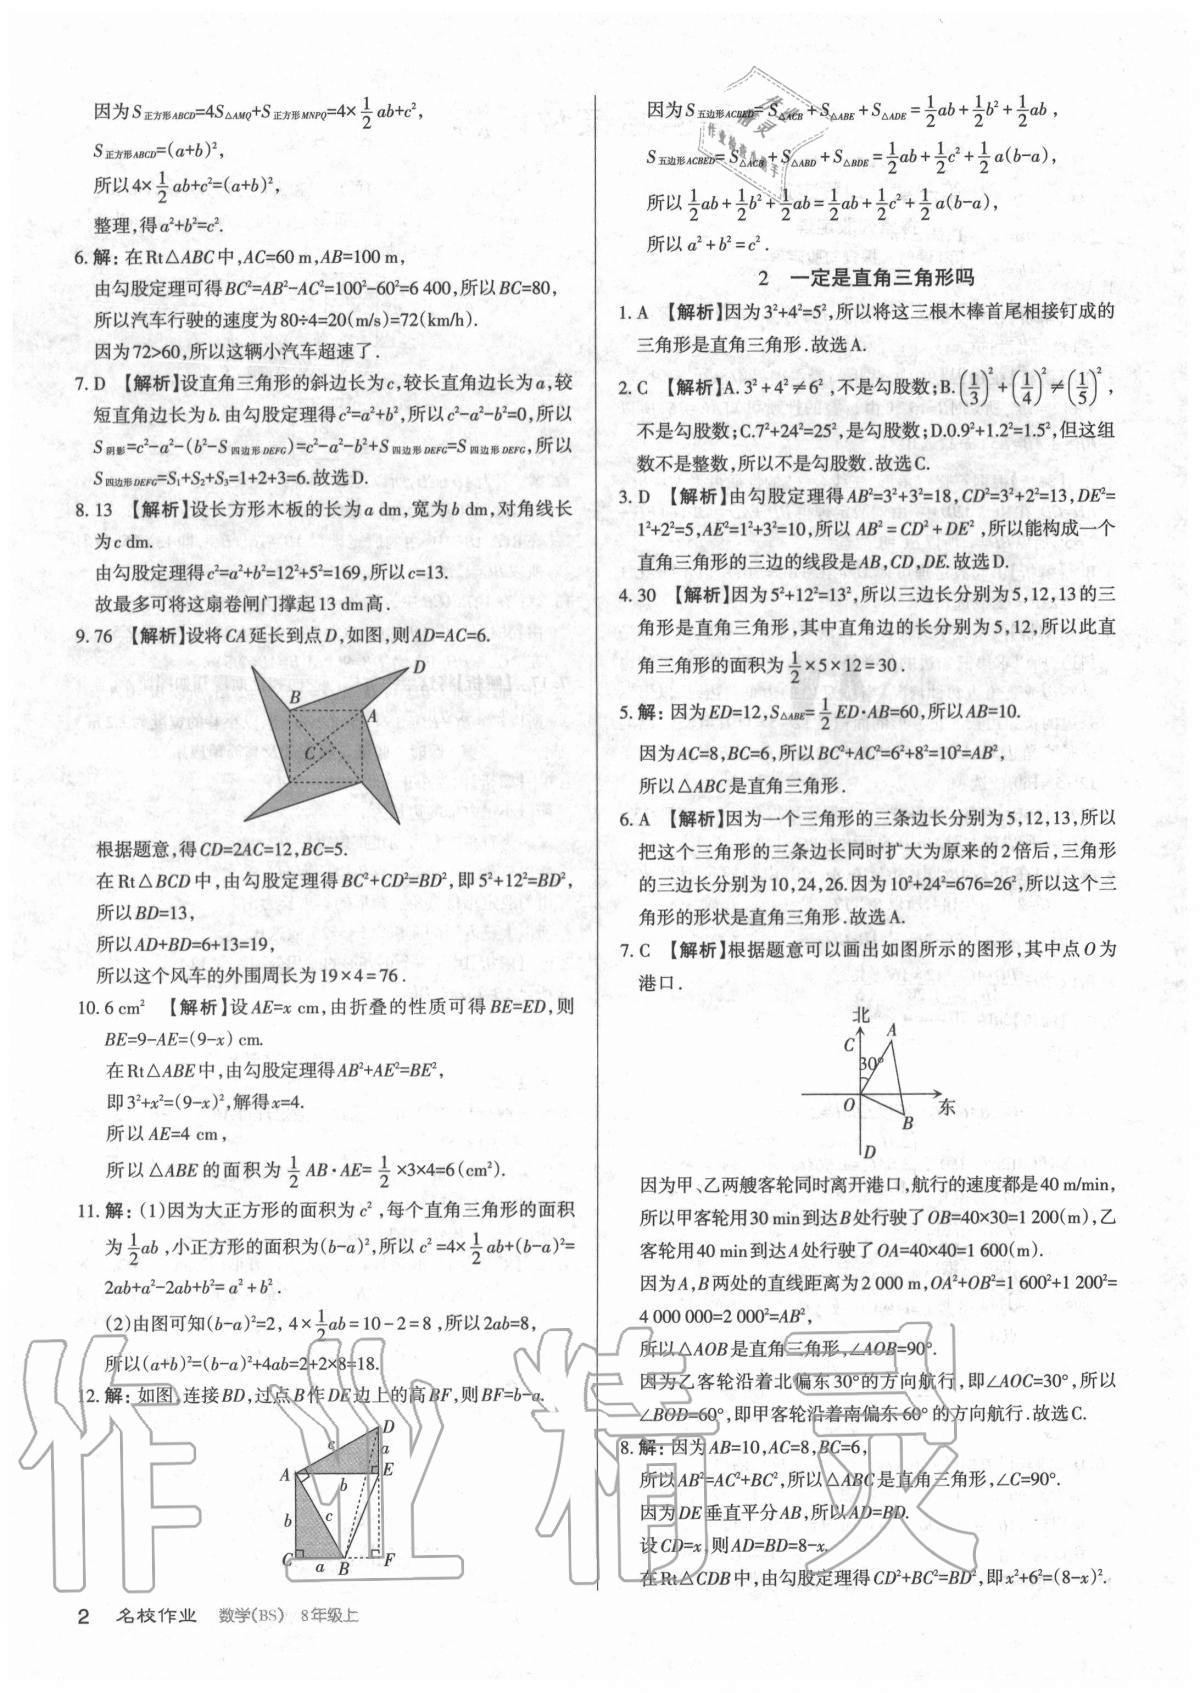 因为S正方形ABCD=4S△AMQ+S正方形MNPQ=4×1/2 ab+c²,
S正方形ABCD=(a+b)²,
所以4×1/2 ab+c²=(a+b)²,
整理,得a²+b²=c².
6. 解: 在Rt△ABC中,AC=60 m,AB=100 m,
由勾股定理可得BC²=AB²-AC²=100²-60²=6 400,所以BC=80,
所以汽车行驶的速度为80÷4=20(m/s)=72(km/h).
因为72>60,所以这辆小汽车超速了.
7. D 【解析】设直角三角形的斜边长为c,较长直角边长为a,较
短直角边长为b.由勾股定理得c²=a²+b²,所以c²-a²-b²=0,所以
S阴影=c²-a²-(b²-S四边形DEFG)=c²-a²-b²+S四边形DEFG=S四边形DEFG,所以
S四边形DEFG=S₁+S₂+S₃=1+2+3=6.故选D.
8. 13 【解析】设长方形木板的长为a dm,宽为b dm,对角线长
为c dm.
由勾股定理得c²=a²+b²=12²+5²=169,所以c=13.
故最多可将这扇卷闸门撑起13 dm高.
9. 76 【解析】设将CA延长到点D,如图,则AD=AC=6.
D
B
A
C
根据题意,得CD=2AC=12,BC=5.
在Rt△BCD中,由勾股定理得BC²+CD²=BD²,即5²+12²=BD²,
所以BD=13,
所以AD+BD=6+13=19,
所以这个风车的外围周长为19×4=76.
10. 6 cm² 【解析】设AE=x cm,由折叠的性质可得BE=ED,则
BE=9-AE=(9-x) cm.
在Rt△ABE中,由勾股定理得AB²+AE²=BE²,
即3²+x²=(9-x)²,解得x=4.
所以AE=4 cm,
所以△ABE的面积为1/2 AB·AE=1/2×3×4=6(cm²).
11. 解: (1)因为大正方形的面积为c²,每个直角三角形的面积
为1/2 ab,小正方形的面积为(b-a)²,所以c²=4×1/2 ab+(b-a)²=
2ab+a²-2ab+b²=a²+b².
(2)由图可知(b-a)²=2, 4×1/2 ab=10-2=8,所以2ab=8,
所以(a+b)²=(b-a)²+4ab=2+2×8=18.
12. 解: 如图,连接BD,过点B作DE边上的高BF,则BF=b-a.
D
c a
A E
b
b c
C a B F
2 名校作业 数学(BS) 8年级上
因为S五边形ACBED=S△ACB+S△ABE+S△ADE=1/2 ab+1/2 b²+1/2 ab,
S五边形ACBED=S△ACB+S△ABD+S△BDE=1/2 ab+1/2 c²+1/2 a(b-a),
所以1/2 ab+1/2 b²+1/2 ab=1/2 ab+1/2 c²+1/2 a(b-a),
所以a²+b²=c².
2 一定是直角三角形吗
1. A 【解析】因为3²+4²=5²,所以将这三根木棒首尾相接钉成的
三角形是直角三角形.故选A.
2. C 【解析】A.3²+4²≠6²,不是勾股数;B.(1/3)²+(1/4)²≠(1/5)²,
不是勾股数;C.7²+24²=25²,是勾股数;D.0.9²+1.2²=1.5²,但这组
数不是整数,所以不是勾股数.故选C.
3. D 【解析】由勾股定理得AB²=3²+3²=18,CD²=3²+2²=13,DE²=
1²+2²=5,AE²=1²+3²=10,所以AB²=CD²+DE²,所以能构成一个
直角三角形的三边的线段是AB,CD,DE.故选D.
4. 30 【解析】因为5²+12²=13²,所以三边长分别为5,12,13的三
角形是直角三角形,其中直角边的长分别为5,12,所以此直
角三角形的面积为1/2×5×12=30.
5. 解: 因为ED=12,S△ABE=1/2 ED·AB=60,所以AB=10.
因为AC=8,BC=6,所以BC²+AC²=6²+8²=10²=AB²,
所以△ABC是直角三角形.
6. A 【解析】因为一个三角形的三条边长分别为5,12,13,所以
把这个三角形的三条边长同时扩大为原来的2倍后,三角形
的三边长分别为10,24,26.因为10²+24²=676=26²,所以这个三
角形的形状是直角三角形.故选A.
7. C 【解析】根据题意可以画出如图所示的图形,其中点O为
港口.
北
C A
30°
O 东
B
D
因为甲、乙两艘客轮同时离开港口,航行的速度都是40 m/min,
所以甲客轮用30 min到达B处行驶了OB=40×30=1 200(m),乙
客轮用40 min到达A处行驶了OA=40×40=1 600(m).
因为A,B两处的直线距离为2 000 m,OA²+OB²=1 600²+1 200²=
4 000 000=2 000²=AB²,
所以△AOB是直角三角形,∠AOB=90°.
因为乙客轮沿着北偏东30°的方向航行,即∠AOC=30°,所以
∠BOD=60°,即甲客轮沿着南偏东60°的方向航行.故选C.
8. 解: 因为AB=10,AC=8,BC=6,
所以AB²=AC²+BC²,所以△ABC是直角三角形,∠C=90°.
因为DE垂直平分AB,所以AD=BD.
设CD=x,则AD=BD=8-x.
在Rt△CDB中,由勾股定理得CD²+BC²=BD²,即x²+6²=(8-x)².
作业精灵